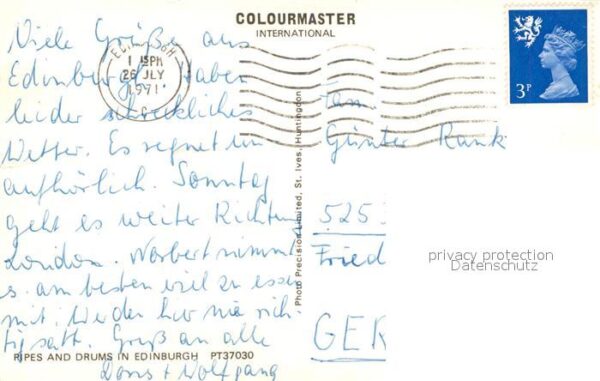 COLOURMASTER
INTERNATIONAL
EDINBURGH
1 15PM
26 JLY
1971
3P
Viele Grüße aus
Edinburgh. Haben
leider schreckliches
Wetter. Es regnet un
aufhörlich. Sonntag
geht es weiter Richtung
London. Norbert nimmt
s. am besten viel zu essen
mit. Werden hier nie rich-
tig satt. Gruß an alle
Doris + Wolfgang
Photo Precision Limited, St. Ives, Huntingdon
Fam.
Günter Rank
525
Fried
GER
privacy protection
Datenschutz
PIPES AND DRUMS IN EDINBURGH PT37030